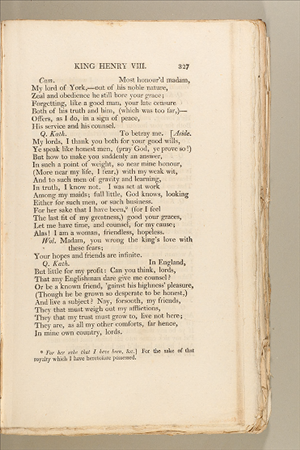 KING HENRY VIII. 327
Cam. Most honour'd madam,
My lord of York,—out of his noble nature,
Zeal and obedience he still bore your grace;
Forgetting, like a good man, your late censure
Both of his truth and him, (which was too far,)—
Offers, as I do, in a sign of peace,
His service and his counsel.
Q. Kath. To betray me. [Aside.
My lords, I thank you both for your good wills,
Ye speak like honest men, (pray God, ye prove so!)
But how to make you suddenly an answer,
In such a point of weight, so near mine honour,
(More near my life, I fear,) with my weak wit,
And to such men of gravity and learning,
In truth, I know not. I was set at work
Among my maids; full little, God knows, looking
Either for such men, or such business.
For her sake that I have been,* (for I feel
The last fit of my greatness,) good your graces,
Let me have time, and counsel, for my cause;
Alas! I am a woman, friendless, hopeless.
Wol. Madam, you wrong the king's love with
these fears;
Your hopes and friends are infinite.
Q. Kath. In England,
But little for my profit: Can you think, lords,
That any Englishman dare give me counsel?
Or be a known friend, 'gainst his highness' pleasure,
(Though he be grown so desperate to be honest,)
And live a subject? Nay, forsooth, my friends,
They that must weigh out my afflictions,
They that my trust must grow to, live not here;
They are, as all my other comforts, far hence,
In mine own country, lords.
* For her sake that I have been, &c.] For the sake of that
royalty which I have heretofore possessed.